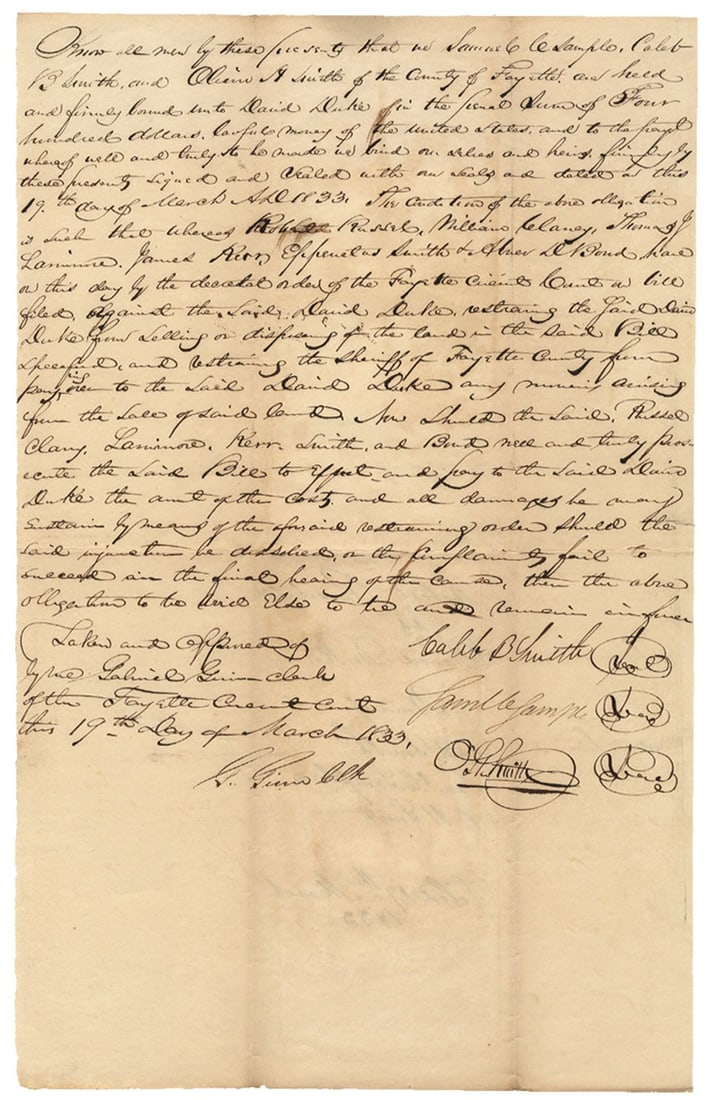 Know all men by these presents that we Samuel C Sample, Caleb
B Smith, and Oliver H Smith of the County of Fayette are held
and firmly bound unto David Duke in the penal Sum of Four
hundred dollars, lawful money of the United States, and to the payt
whereof well and truly to be made we bind our selves and heirs firmly by
these presents signed and Sealed with our Seals and dated on this
19.th day of March A.D. 1833. The condition of the above obligation
is such that whereas Russel, William Clancy, Thomas J
Larrimore. James Kerr, Smith & Abner D Bond have
on this day by the decretal order of the Fayette Circuit Court on bill
filed, against the Said David Duke, restraining the Said David
Duke from Selling or disposing of the land in the said Bill
specified, and restraining the Sheriff of Fayette County from
paying over to the Said David Duke any moneys arising
from the Sale of said land. Now Should the Said, Russel
Clany, Larrimore, Kerr. Smith, and Bond well and truly pros-
ecute the Said Bill to Effect, and pay to the Said David
Duke the amt of the Costs, and all damages he may
Sustain by means of the aforsaid restraining order Should the
said injunction be dissolved, or the Complainants fail to
succeed in the final hearing of the cause, then the above
obligation to be void Else to be and remain in force
Taken and approved of
by me Gabriel Ginn clerk
of the Fayette Circuit Court
this 19th Day of March 1833.
G. Ginn Clk
Caleb B Smith Seal
Saml C Sample Seal
O. H. Smith Seal